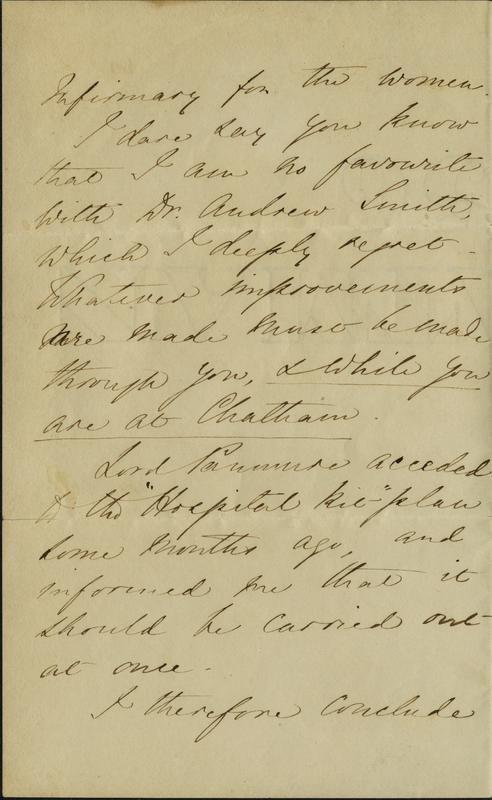 Infirmary for the women.
I dare say you know
that I am no favourite
with Dr. Andrew Smith,
which I deeply regret -
Whatever improvements
are made must be made
through you, & while you
are at Chatham.
Lord Panmure acceded
to the "Hospital kit" plan
some months ago, and
informed me that it
should be carried out
at once -
I therefore conclude